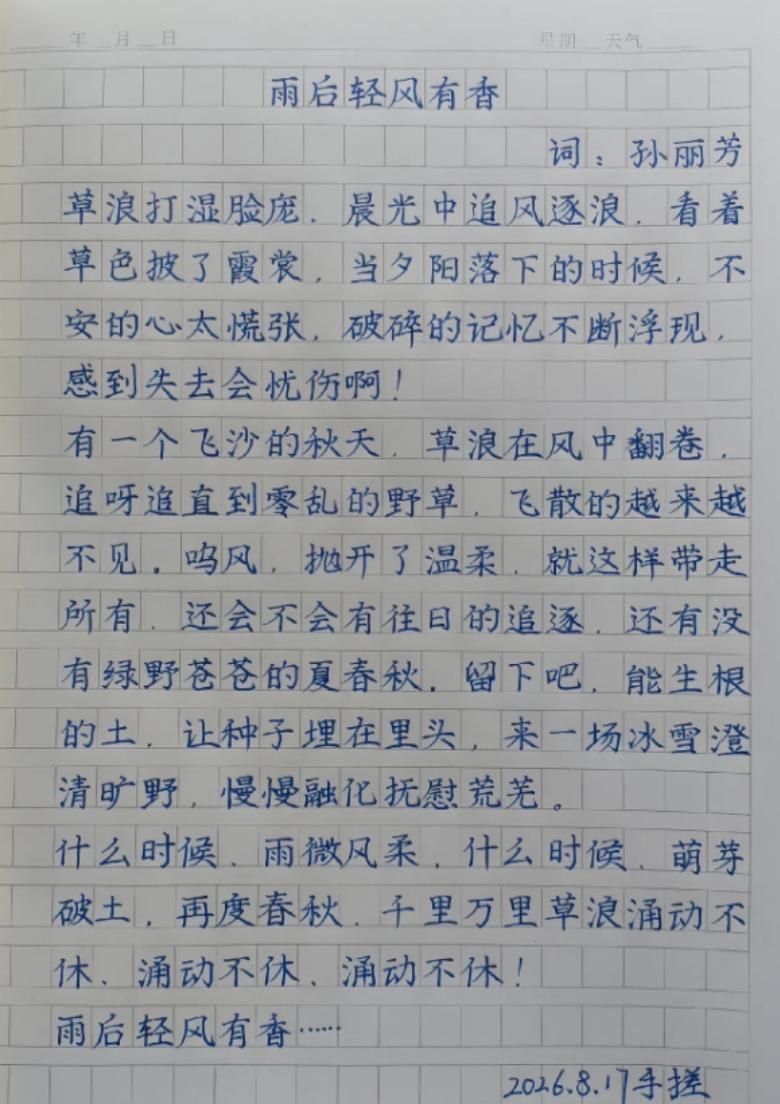 年 月 日 星期 天气
雨后轻风有香
词：孙丽芳
草浪打湿脸庞，晨光中追风逐浪，看着
草色披了霞裳，当夕阳落下的时候，不
安的心太慌张，破碎的记忆不断浮现，
感到失去会忧伤啊！
有一个飞沙的秋天，草浪在风中翻卷，
追呀追直到零乱的野草，飞散的越来越
不见。呜风，抛开了温柔，就这样带走
所有，还会不会有往日的追逐，还有没
有绿野苍苍的夏春秋。留下吧，能生根
的土，让种子埋在里头，来一场冰雪澄
清旷野，慢慢融化抚慰荒芜。
什么时候、雨微风柔，什么时候、萌芽
破土，再度春秋，千里万里草浪涌动不
休、涌动不休、涌动不休！
雨后轻风有香……
2026.8.17手搓